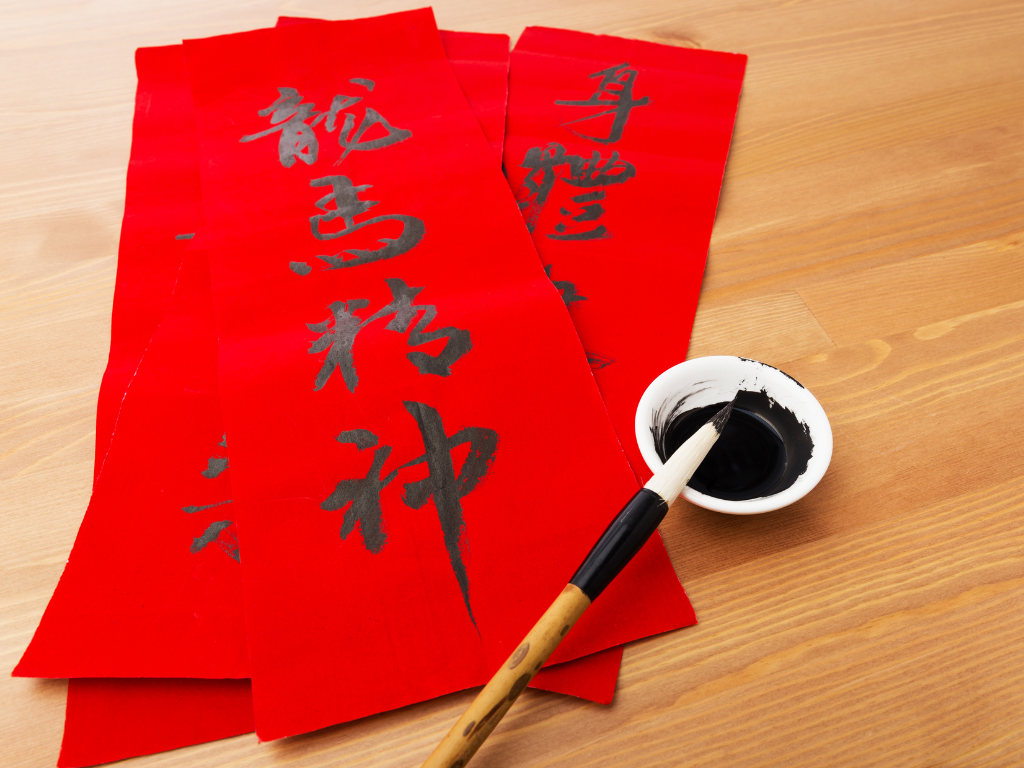 龍馬精神
身體